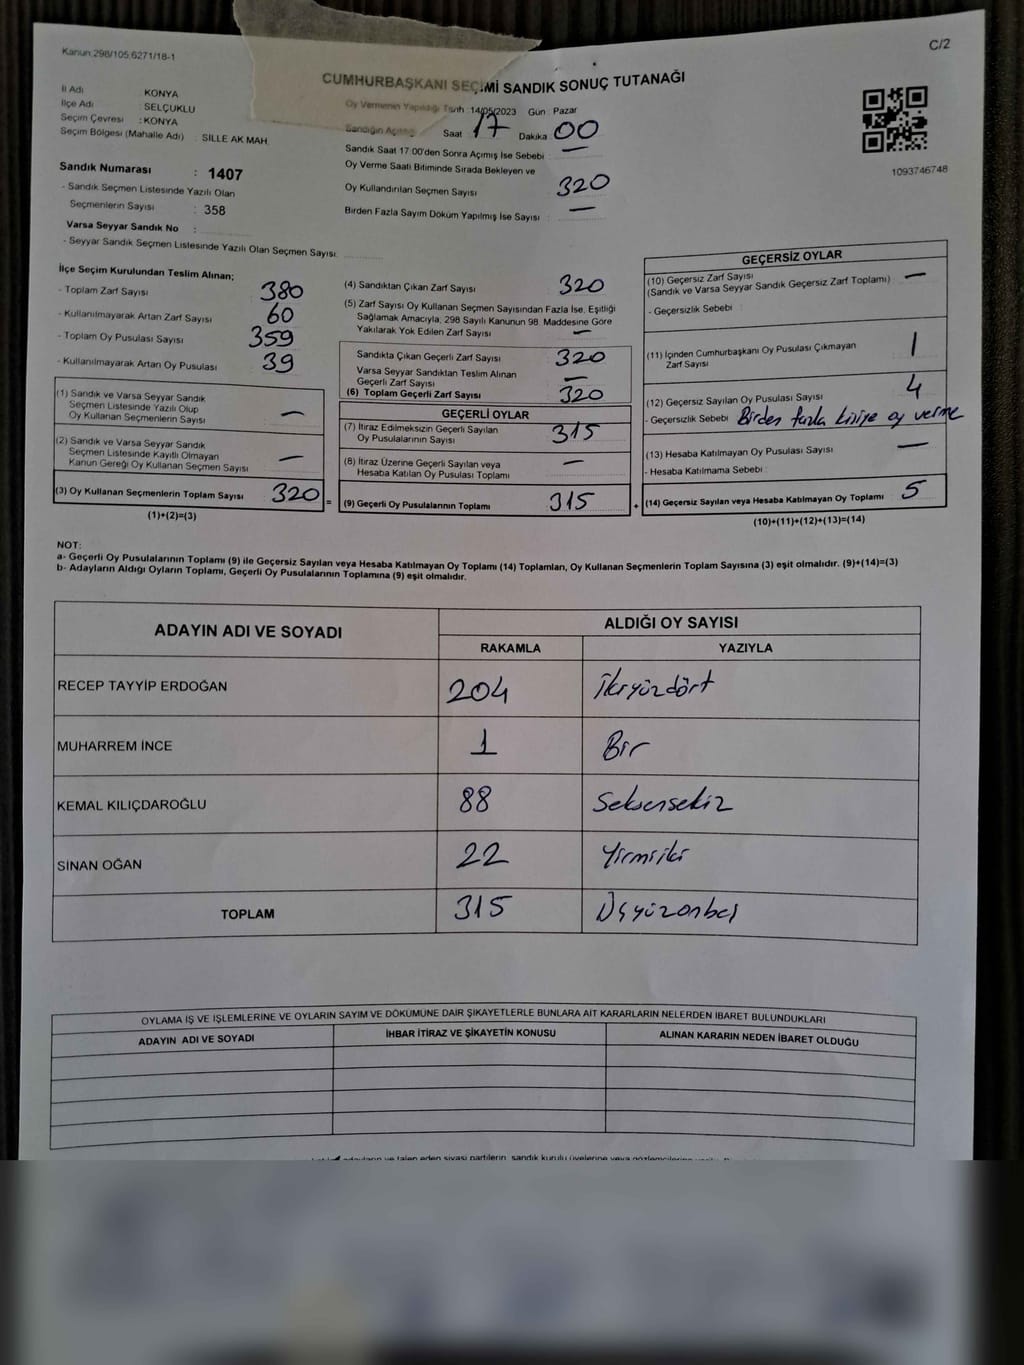 Kanun:298/105,6271/18-1
C/2
CUMHURBAŞKANI SEÇİMİ SANDIK SONUÇ TUTANAĞI
İl Adı KONYA
İlçe Adı : SELÇUKLU
Seçim Çevresi : KONYA
Seçim Bölgesi (Mahalle Adı) : SILLE AK MAH.
Oy Vermenin Yapıldığı Tarih :14/05/2023 Gün : Pazar
Sandığın Açıldığı Saat 17 Dakika 00
Sandık Saat 17:00'den Sonra Açımış İse Sebebi : —
Oy Verme Saati Bitiminde Sırada Bekleyen ve
Oy Kullandırılan Seçmen Sayısı 320
Birden Fazla Sayım Döküm Yapılmış İse Sayısı : —
1093746748
Sandık Numarası : 1407
- Sandık Seçmen Listesinde Yazılı Olan
Seçmenlerin Sayısı : 358
Varsa Seyyar Sandık No :
- Seyyar Sandık Seçmen Listesinde Yazılı Olan Seçmen Sayısı:
İlçe Seçim Kurulundan Teslim Alınan;
- Toplam Zarf Sayısı 380
- Kullanılmayarak Artan Zarf Sayısı 60
- Toplam Oy Pusulası Sayısı 359
- Kullanılmayarak Artan Oy Pusulası 39
(1) Sandık ve Varsa Seyyar Sandık
Seçmen Listesinde Yazılı Olup
Oy Kullanan Seçmenlerin Sayısı —
(2) Sandık ve Varsa Seyyar Sandık
Seçmen Listesinde Kayıtlı Olmayan
Kanun Gereği Oy Kullanan Seçmen Sayısı —
(3) Oy Kullanan Seçmenlerin Toplam Sayısı 320 =
(1)+(2)=(3)
(4) Sandıktan Çıkan Zarf Sayısı 320
(5) Zarf Sayısı Oy Kullanan Seçmen Sayısından Fazla İse, Eşitliği
Sağlamak Amacıyla, 298 Sayılı Kanunun 98. Maddesine Göre
Yakılarak Yok Edilen Zarf Sayısı —
Sandıkta Çıkan Geçerli Zarf Sayısı 320
Varsa Seyyar Sandıktan Teslim Alınan
Geçerli Zarf Sayısı —
(6) Toplam Geçerli Zarf Sayısı 320
GEÇERLİ OYLAR
(7) İtiraz Edilmeksizin Geçerli Sayılan
Oy Pusulalarının Sayısı 315
(8) İtiraz Üzerine Geçerli Sayılan veya
Hesaba Katılan Oy Pusulası Toplamı —
(9) Geçerli Oy Pusulalarının Toplamı 315 +
GEÇERSİZ OYLAR
(10) Geçersiz Zarf Sayısı
(Sandık ve Varsa Seyyar Sandık Geçersiz Zarf Toplamı) —
- Geçersizlik Sebebi :
(11) İçinden Cumhurbaşkanı Oy Pusulası Çıkmayan
Zarf Sayısı 1
(12) Geçersiz Sayılan Oy Pusulası Sayısı 4
- Geçersizlik Sebebi Birden fazla kişiye oy verme
(13) Hesaba Katılmayan Oy Pusulası Sayısı —
- Hesaba Katılmama Sebebi :
(14) Geçersiz Sayılan veya Hesaba Katılmayan Oy Toplamı 5
(10)+(11)+(12)+(13)=(14)
NOT:
a- Geçerli Oy Pusulalarının Toplamı (9) ile Geçersiz Sayılan veya Hesaba Katılmayan Oy Toplamı (14) Toplamları, Oy Kullanan Seçmenlerin Toplam Sayısına (3) eşit olmalıdır. (9)+(14)=(3)
b- Adayların Aldığı Oyların Toplamı, Geçerli Oy Pusulalarının Toplamına (9) eşit olmalıdır.
ADAYIN ADI VE SOYADI ALDIĞI OY SAYISI
RAKAMLA YAZIYLA
RECEP TAYYİP ERDOĞAN 204 İkiyüzdört
MUHARREM İNCE 1 Bir
KEMAL KILIÇDAROĞLU 88 Seksensekiz
SİNAN OĞAN 22 Yirmiiki
TOPLAM 315 Üçyüzonbeş
OYLAMA İŞ VE İŞLEMLERİNE VE OYLARIN SAYIM VE DÖKÜMÜNE DAİR ŞİKAYETLERLE BUNLARA AİT KARARLARIN NELERDEN İBARET BULUNDUKLARI
ADAYIN ADI VE SOYADI İHBAR İTİRAZ VE ŞİKAYETİN KONUSU ALINAN KARARIN NEDEN İBARET OLDUĞU